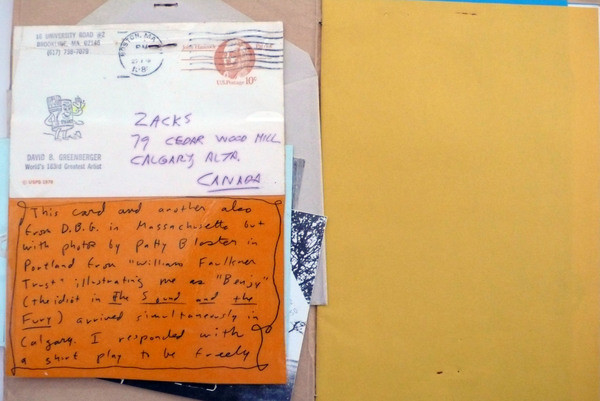 10 UNIVERSITY ROAD #2
BROOKLINE, MA 02146
(617) 738-7079
BOSTON, MA
PM
John Hanson
U.S. Postage 10¢
ZACKS
79 CEDAR WOOD HILL
CALGARY ALTA.
CANADA
DAVID B. GREENBERGER
World's 383rd Greatest Artist
© USPS 1978
This card and another also
from D.B.G. in Massachusetts but
with photos by Patty Blaster in
Portland from "William Faulkner
Trust" illustrating me as "Benjy"
(the idiot in The Sound and the
Fury) arrived simultaneously in
Calgary. I responded with
a shirt play to be freely